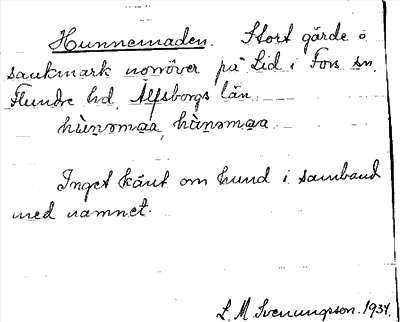 Hunnemaden. Stort gärde o
sankmark norröver på Lid i Fors sn.
Flundre hd, Älfsborgs län
hùnəmaa, hùnəmaa
Inget känt om hund i samband
med namnet.
L. M. Svenungsson. 1934.